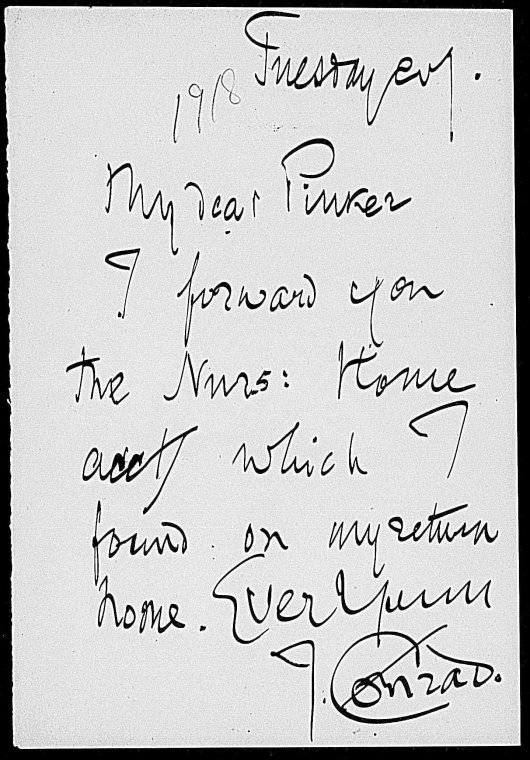 Tuesday evg.
1918
My dear Pinker
I forward you
the Nurs: Home
acct which I
found on my return
home. Ever Yours
J. Conrad.